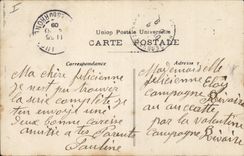 Union Postale Universelle
CARTE POSTALE
Correspondance
Adresse
Ma chère félicienne
je n'est pu trouvez
la série complète je
t'en envoie une
Deux bonne caresse
amitié a tes Parents
Pauline
Mademoiselle
félicienne Eloy
Campagne Rivoire
au
par la Valentine
Campagne Rivoire